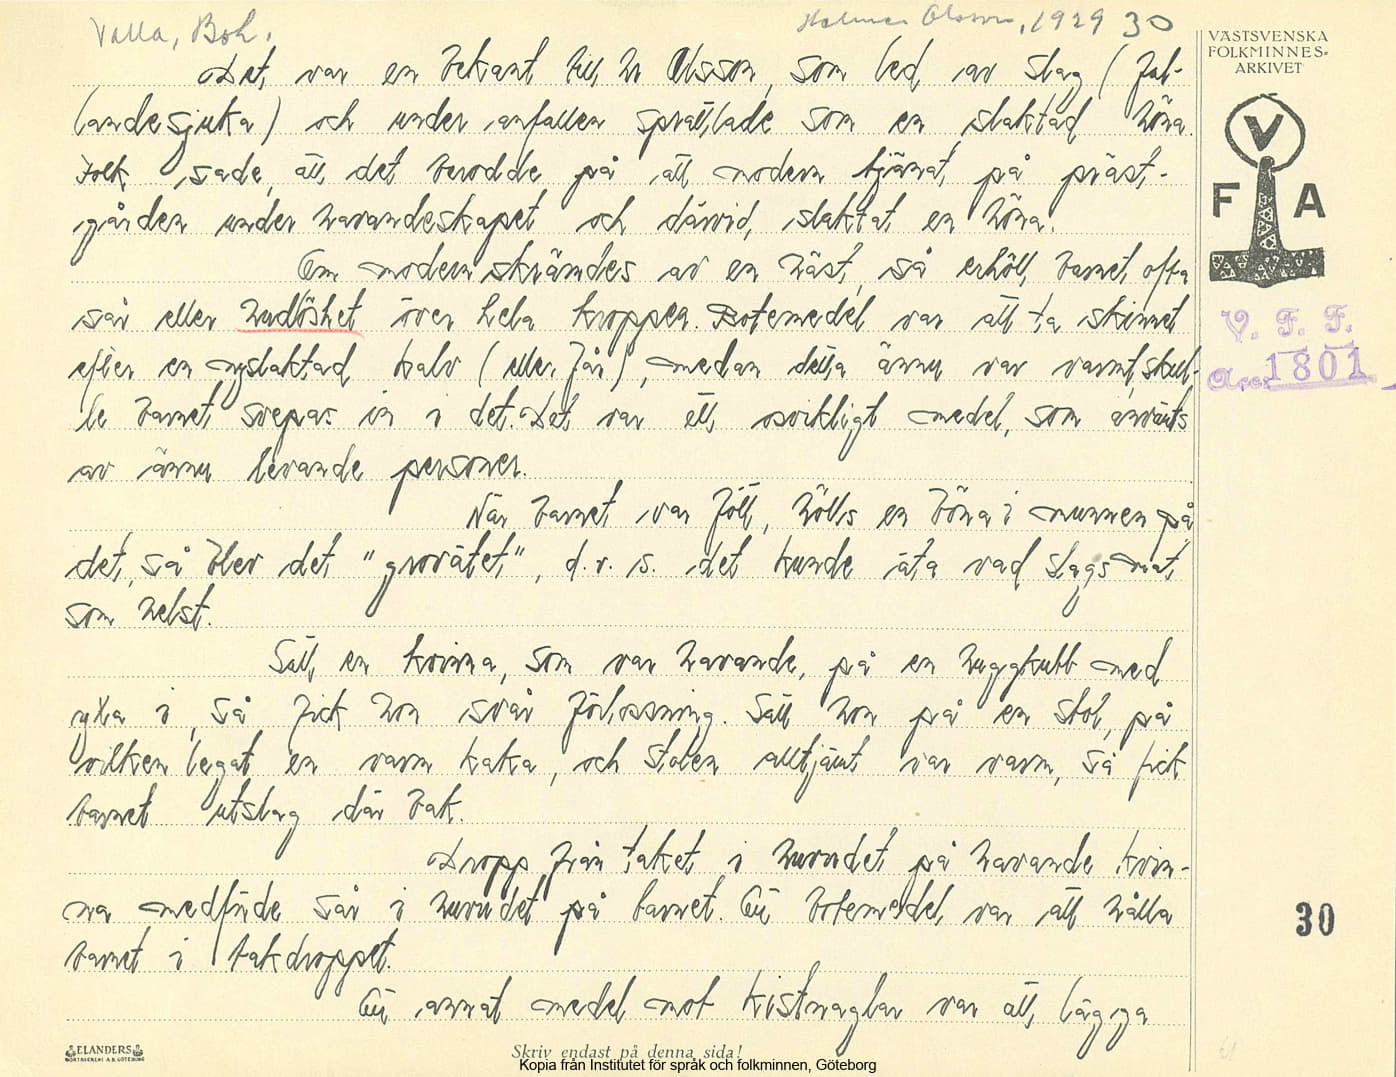 Valla, Boh.
Helmer Olsson, 1929 30
VÄSTSVENSKA
FOLKMINNES-
ARKIVET
V
F A
Det var en bekant till hr Olsson, som led av slag (fal-
landesjuka) och under anfallen sprattlade som en slaktad höna.
Folk sade, att det berodde på att modern tjänat på präst-
gården under havandeskapet och därvid slaktat en höna.
Om modern skrämdes av en häst, så erhöll barnet ofta
sår eller hudlöshet över hela kroppen. Botemedel var att ta skinnet
efter en nyslaktad kalv (eller får), medan detta ännu var varmt, skul-
le barnet svepas in i det. Det var ett osvikligt medel, som använts
av ännu levande personer.
När barnet var fött, hölls en böna i munnen på
det, så blev det "grovätet", d.v.s. det kunde äta vad slags mat
som helst.
Satt en kvinna, som var havande, på en huggkubb med
yxa i, så fick hon svår förlossning. Satt hon på en stol, på
vilken legat en varm kaka, och stolen alltjämt var varm, så fick
barnet utslag där bak.
Dropp från taket i huvudet på havande kvin-
na medförde sår i huvudet på barnet. Ett botemedel var att hålla
barnet i takdroppet.
Ett annat medel mot kistnaglar var att lägga
V. F. F.
Acc. 1801
30
ELANDERS
BOKTRYCKERI A.B. GÖTEBORG
Skriv endast på denna sida!
Kopia från Institutet för språk och folkminnen, Göteborg